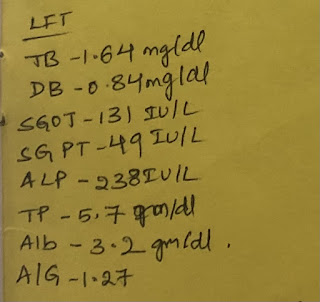 LFT
TB - 1.64 mg/dl
DB - 0.84 mg/dl
SGOT - 131 IU/L
SGPT - 49 IU/L
ALP - 238 IU/L
TP - 5.7 gm/dl
Alb - 3.2 gm/dl.
A/G - 1.27